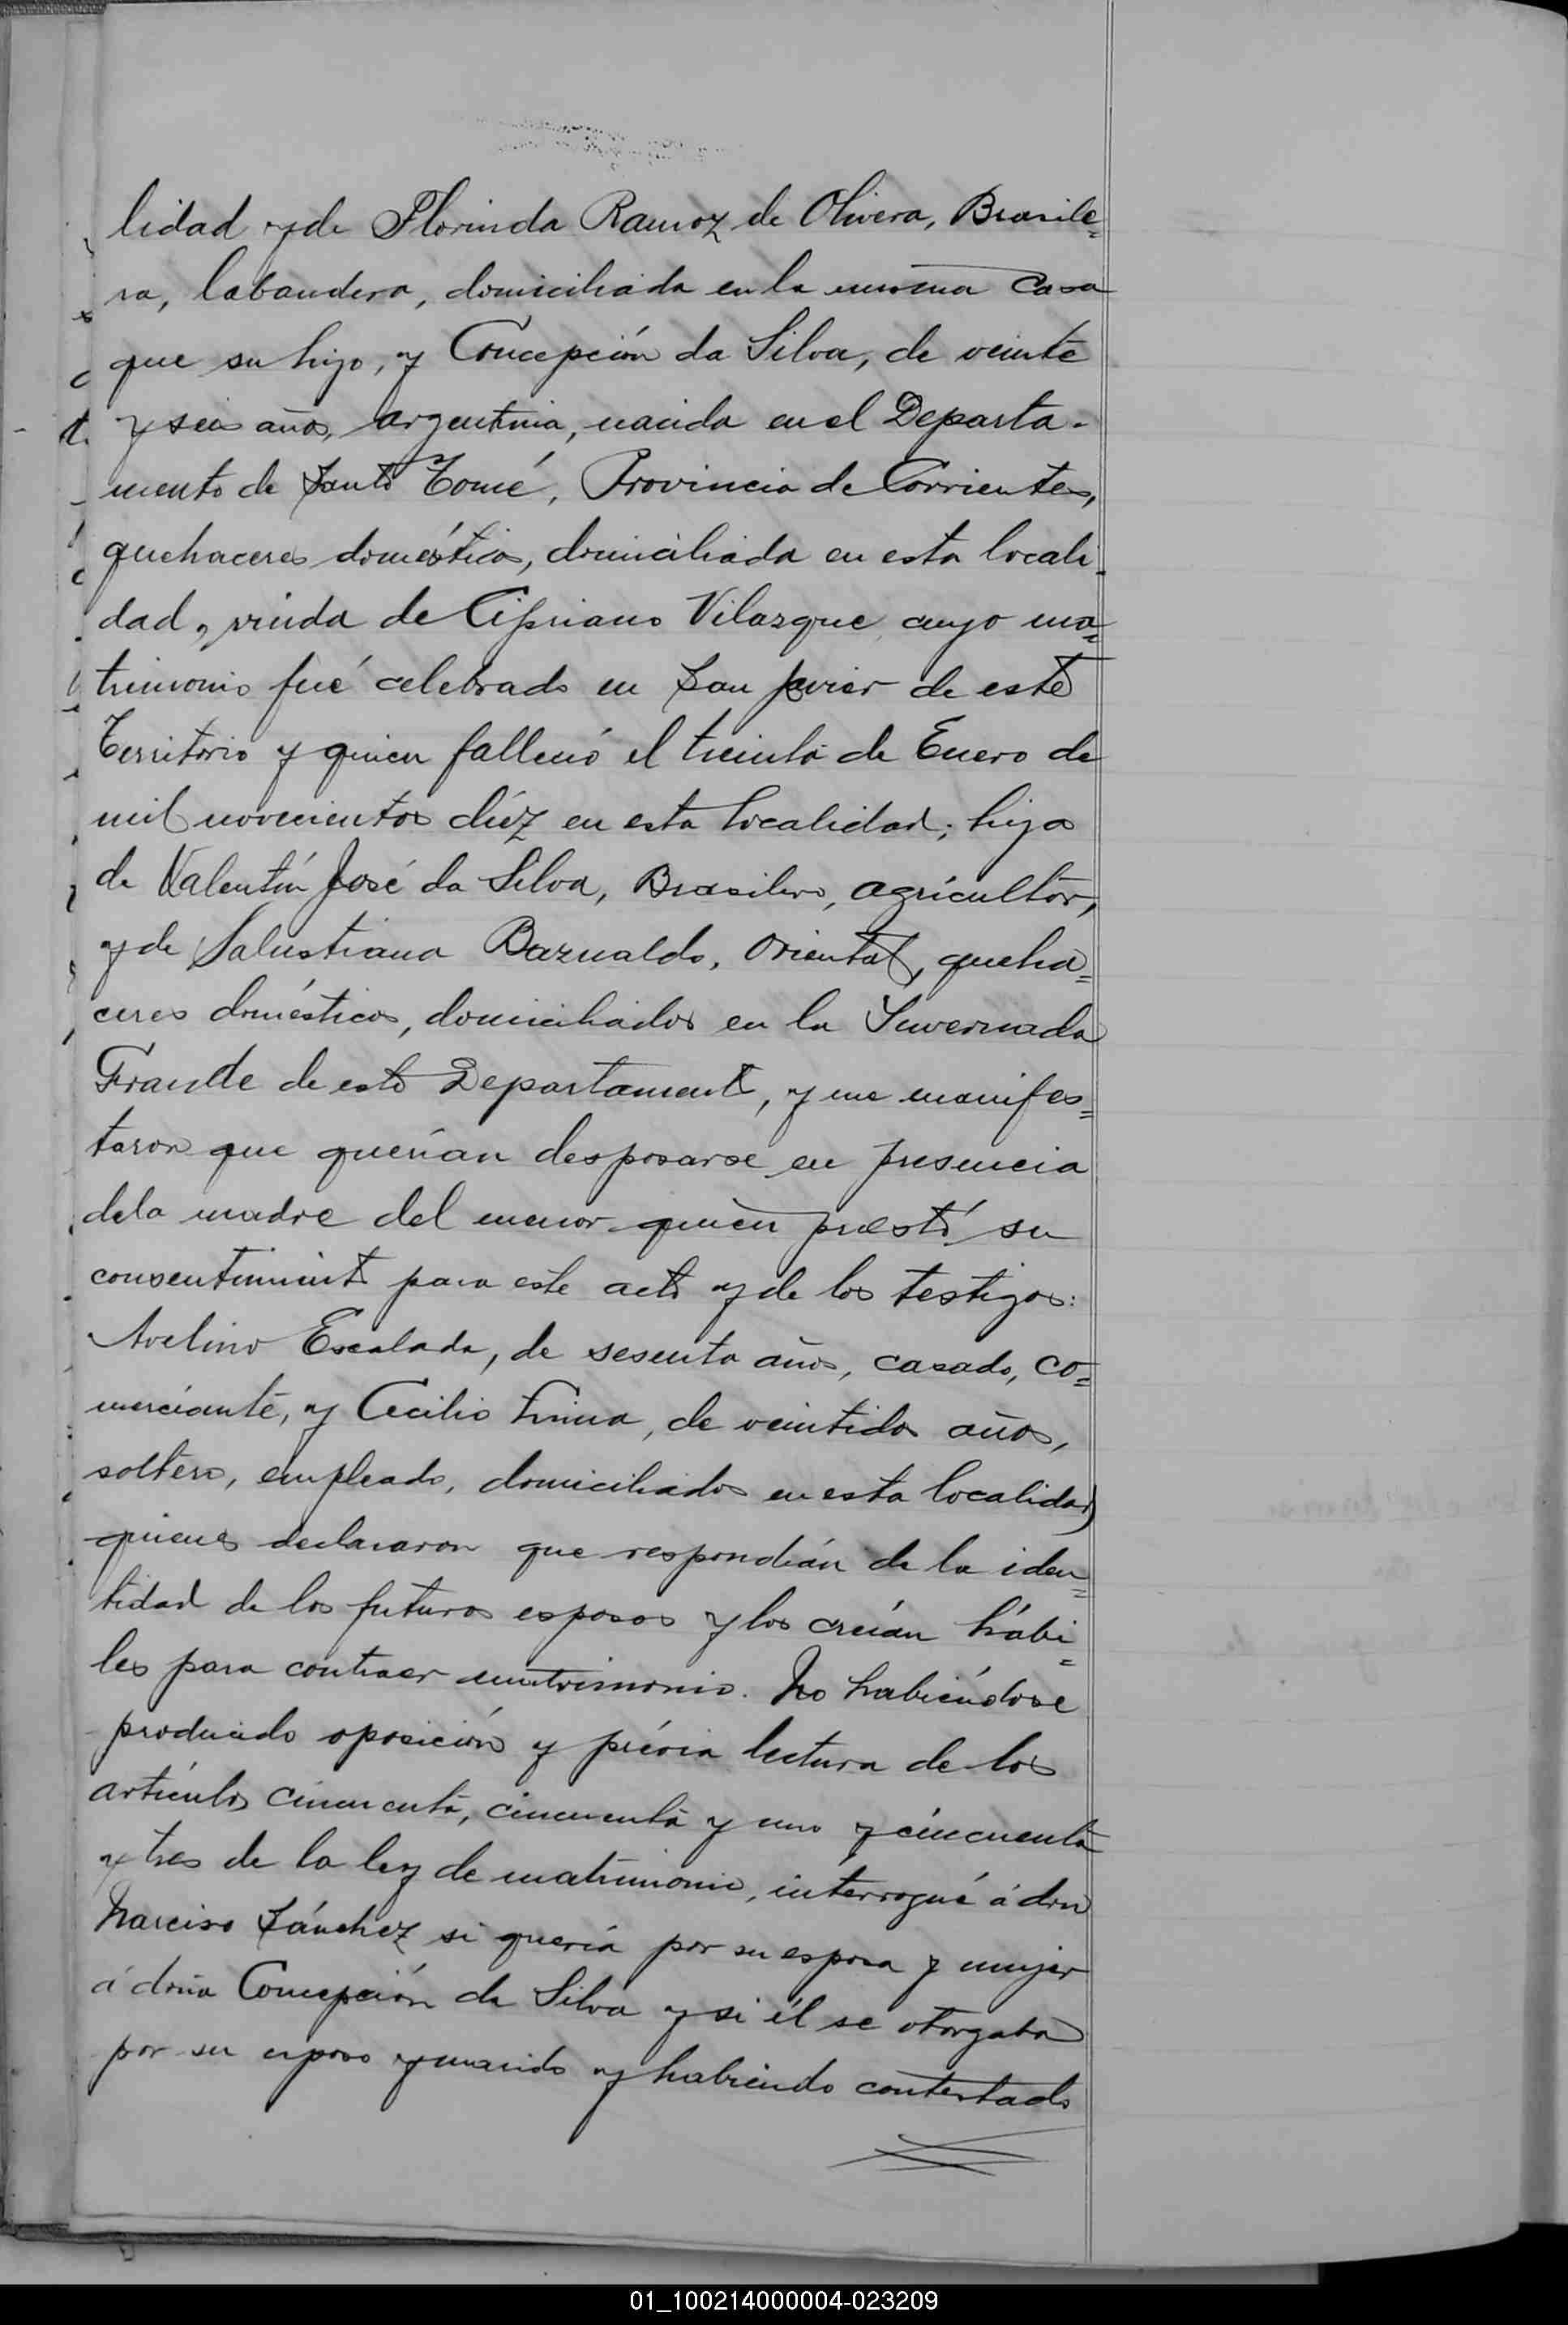 lidad y de Florinda Ramoz de Olivera, Brasile=
ra, labandera, domiciliada en la misma casa
que su hijo, y Concepción da Silva, de veinte
y seis años, argentina, nacida en el Departa-
mento de Santo Tomé, Provincia de Corrientes,
quehaceres domésticos, domiciliada en esta locali-
dad, viuda de Cipriano Vilasque cuyo ma=
trimonio fué celebrado en San Javier de este
Territorio y quien falleció el treinta de Enero de
mil novecientos diéz en esta localidad; hija
de Valentín José da Silva, Brasilero, agricultor,
y de Salustiana Baznaldo, Oriental, queha=
ceres domésticos, domiciliados en la Invernada
Grande de este Departamento, y me manifes=
taron que querían desposarse en presencia
de la madre del menor quien prestó su
consentimiento para este acto y de los testigos:
Avelino Escalada, de sesenta años, casado, co=
merciante, y Cecilio, de veintidos años,
soltero, empleado, domiciliados en esta localidad
quienes declararon que respondían de la iden=
tidad de los futuros esposos y los creían hábi=
les para contraer matrimonio. No habiéndose
producido oposición y prévia lectura de los
artículos cincuenta, cincuenta y uno y cincuenta
y tres de la ley de matrimonio, interrogué á don
Narciso Sánchez si quería por su esposa y mujer
á doña Concepción da Silva y si él se otorgaba
por su esposo y marido y habiendo contestado
01_100214000004-023209